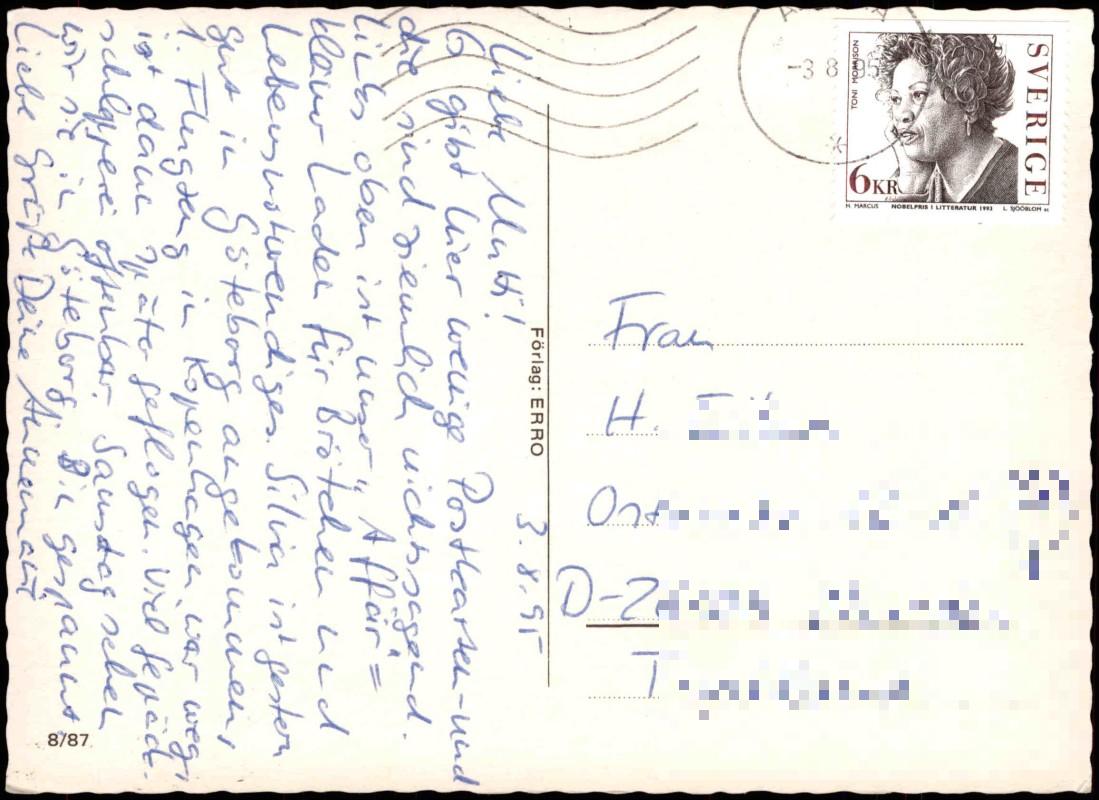 3.8.95
Liebe Mutti!
Es gibt hier wenige Postkarten - und
die sind ziemlich nichtssagend.
Links oben ist unser "Affär" =
kleiner Laden für Brötchen und
Lebensnotwendiges. Silvia ist gestern
gut in Göteborg angekommen,
1. Flugzeug in Kopenhagen war weg,
ist dann später geflogen. Viel Gepäck-
schlepperei offenbar. Samstag sehen
wir sie in Göteborg. Bin gespannt.
Liebe Grüße Deine Annemarie
8/87
Förlag: ERRO
-3 8 95
TONI MORRISON
SVERIGE
6 KR
M. MARCUS NOBELPRIS I LITTERATUR 1993 L. SJÖÖBLOM sc
Frau
H.
Ost
D-2
T